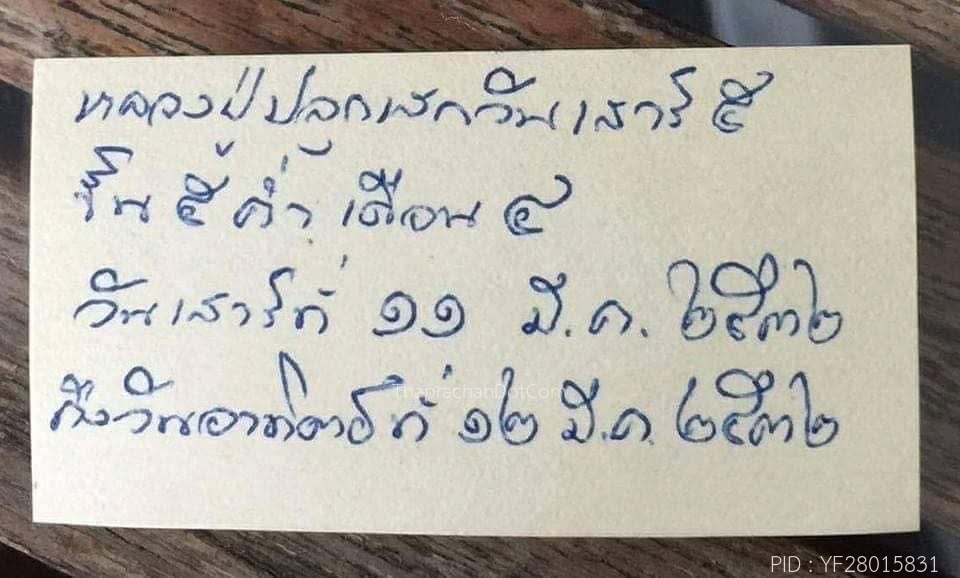 หลวงปู่ปลุกเสกวันเสาร์ ๕
ขึ้น ๕ ค่ำ เดือน ๔
วันเสาร์ที่ ๑๑ มี.ค. ๒๕๓๒
ถึงวันอาทิตย์ที่ ๑๒ มี.ค. ๒๕๓๒
ThaprachanDotCom
PID : YF28015831